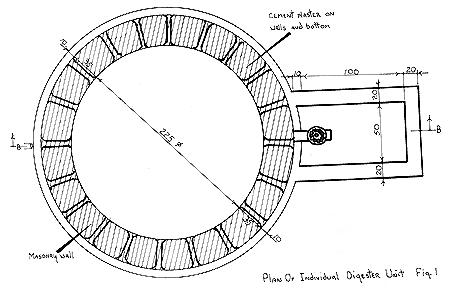 CEMENT PLASTER ON
WALLS and bottom
10
30
10
100
20
20
50
20
B
B
225 ø
30
10
MASONRY WALL
PLAN OF INDIVIDUAL DIGESTER UNIT Fig.1